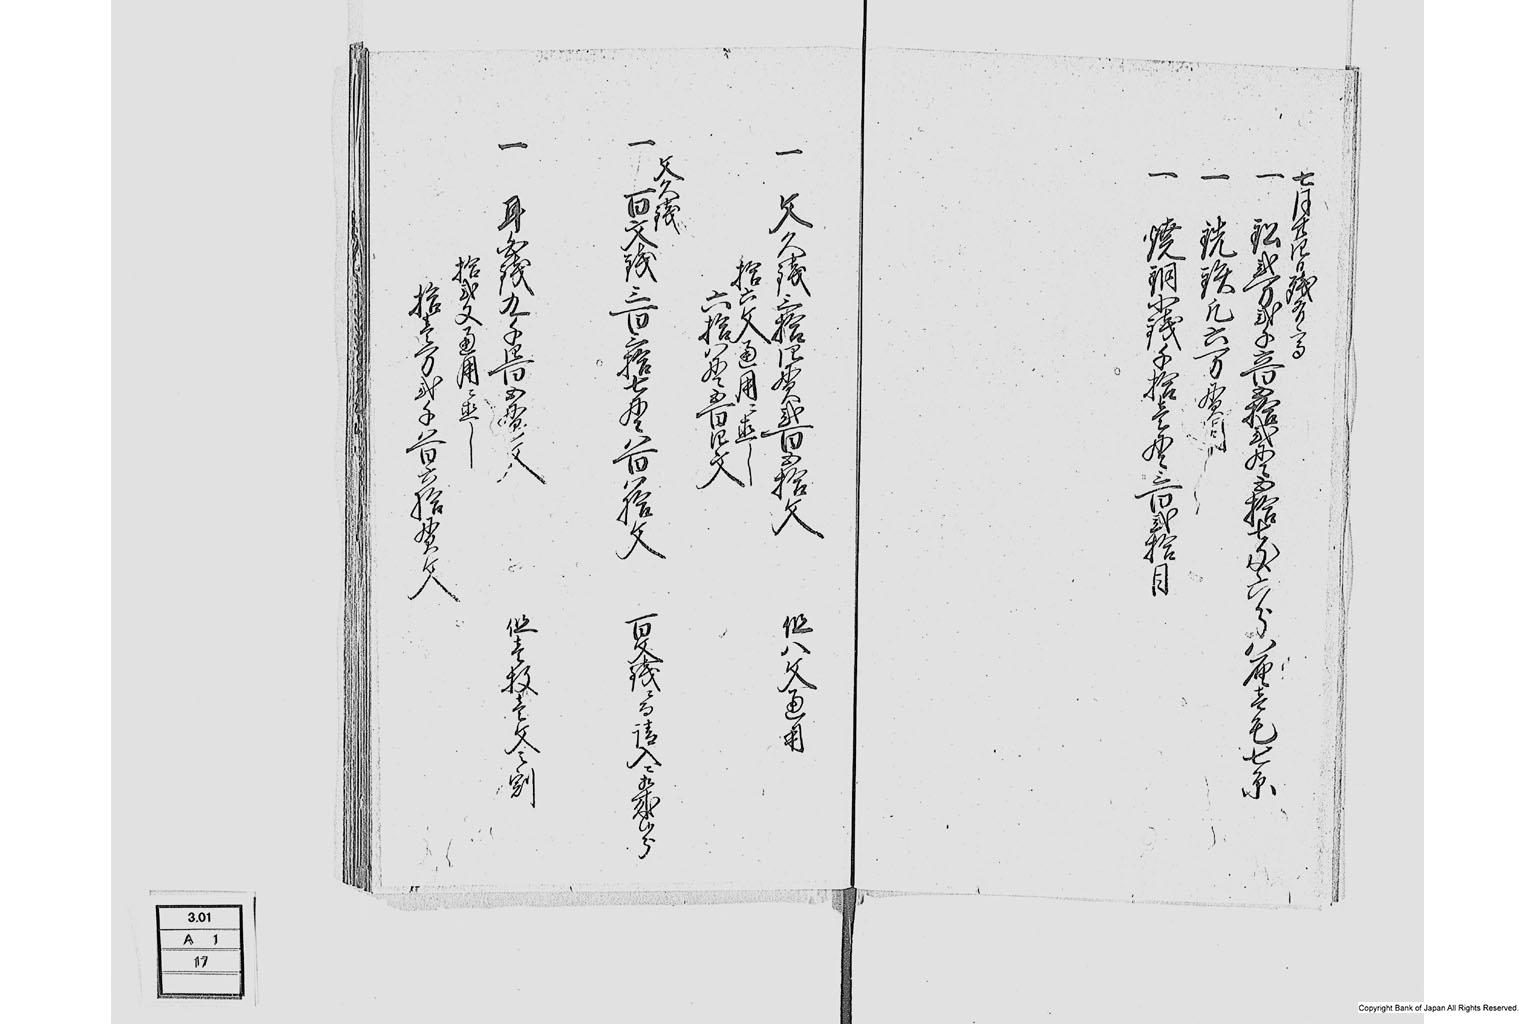 七月廿四日残り高
一 鉛弐万弐千六百五拾弐貫五拾七匁六分八厘壱毛七糸
一 銑鉄凡六万貫目
一 焼銅小銭千拾壱貫三百弐拾目
一 文久銭三拾四貫弐百五拾文 但八文通用
拾六文通用ニ直し
六拾八貫五百四文
文久銭
一 百文銭三百六拾七貫八百八拾文 百文銭ニ而請入ニ相成候分
一 耳白銭九千四百五貫文 但壱枚壱文之割
拾弐文通用ニ直し
拾壱万弐千八百六拾貫文
3.01
A 1
17
Copyright Bank of Japan All Rights Reserved.